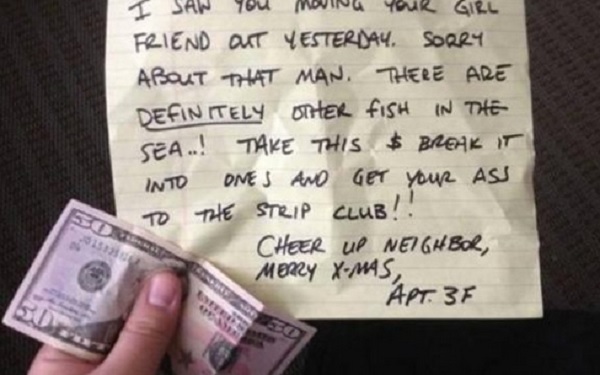 I SAW YOU MOVING YOUR GIRL
FRIEND OUT YESTERDAY. SORRY
ABOUT THAT MAN. THERE ARE
DEFINITELY OTHER FISH IN THE
SEA..! TAKE THIS $ BREAK IT
INTO ONES AND GET YOUR ASS
TO THE STRIP CLUB!!
CHEER UP NEIGHBOR,
MERRY X-MAS,
APT. 3F
50
50
50